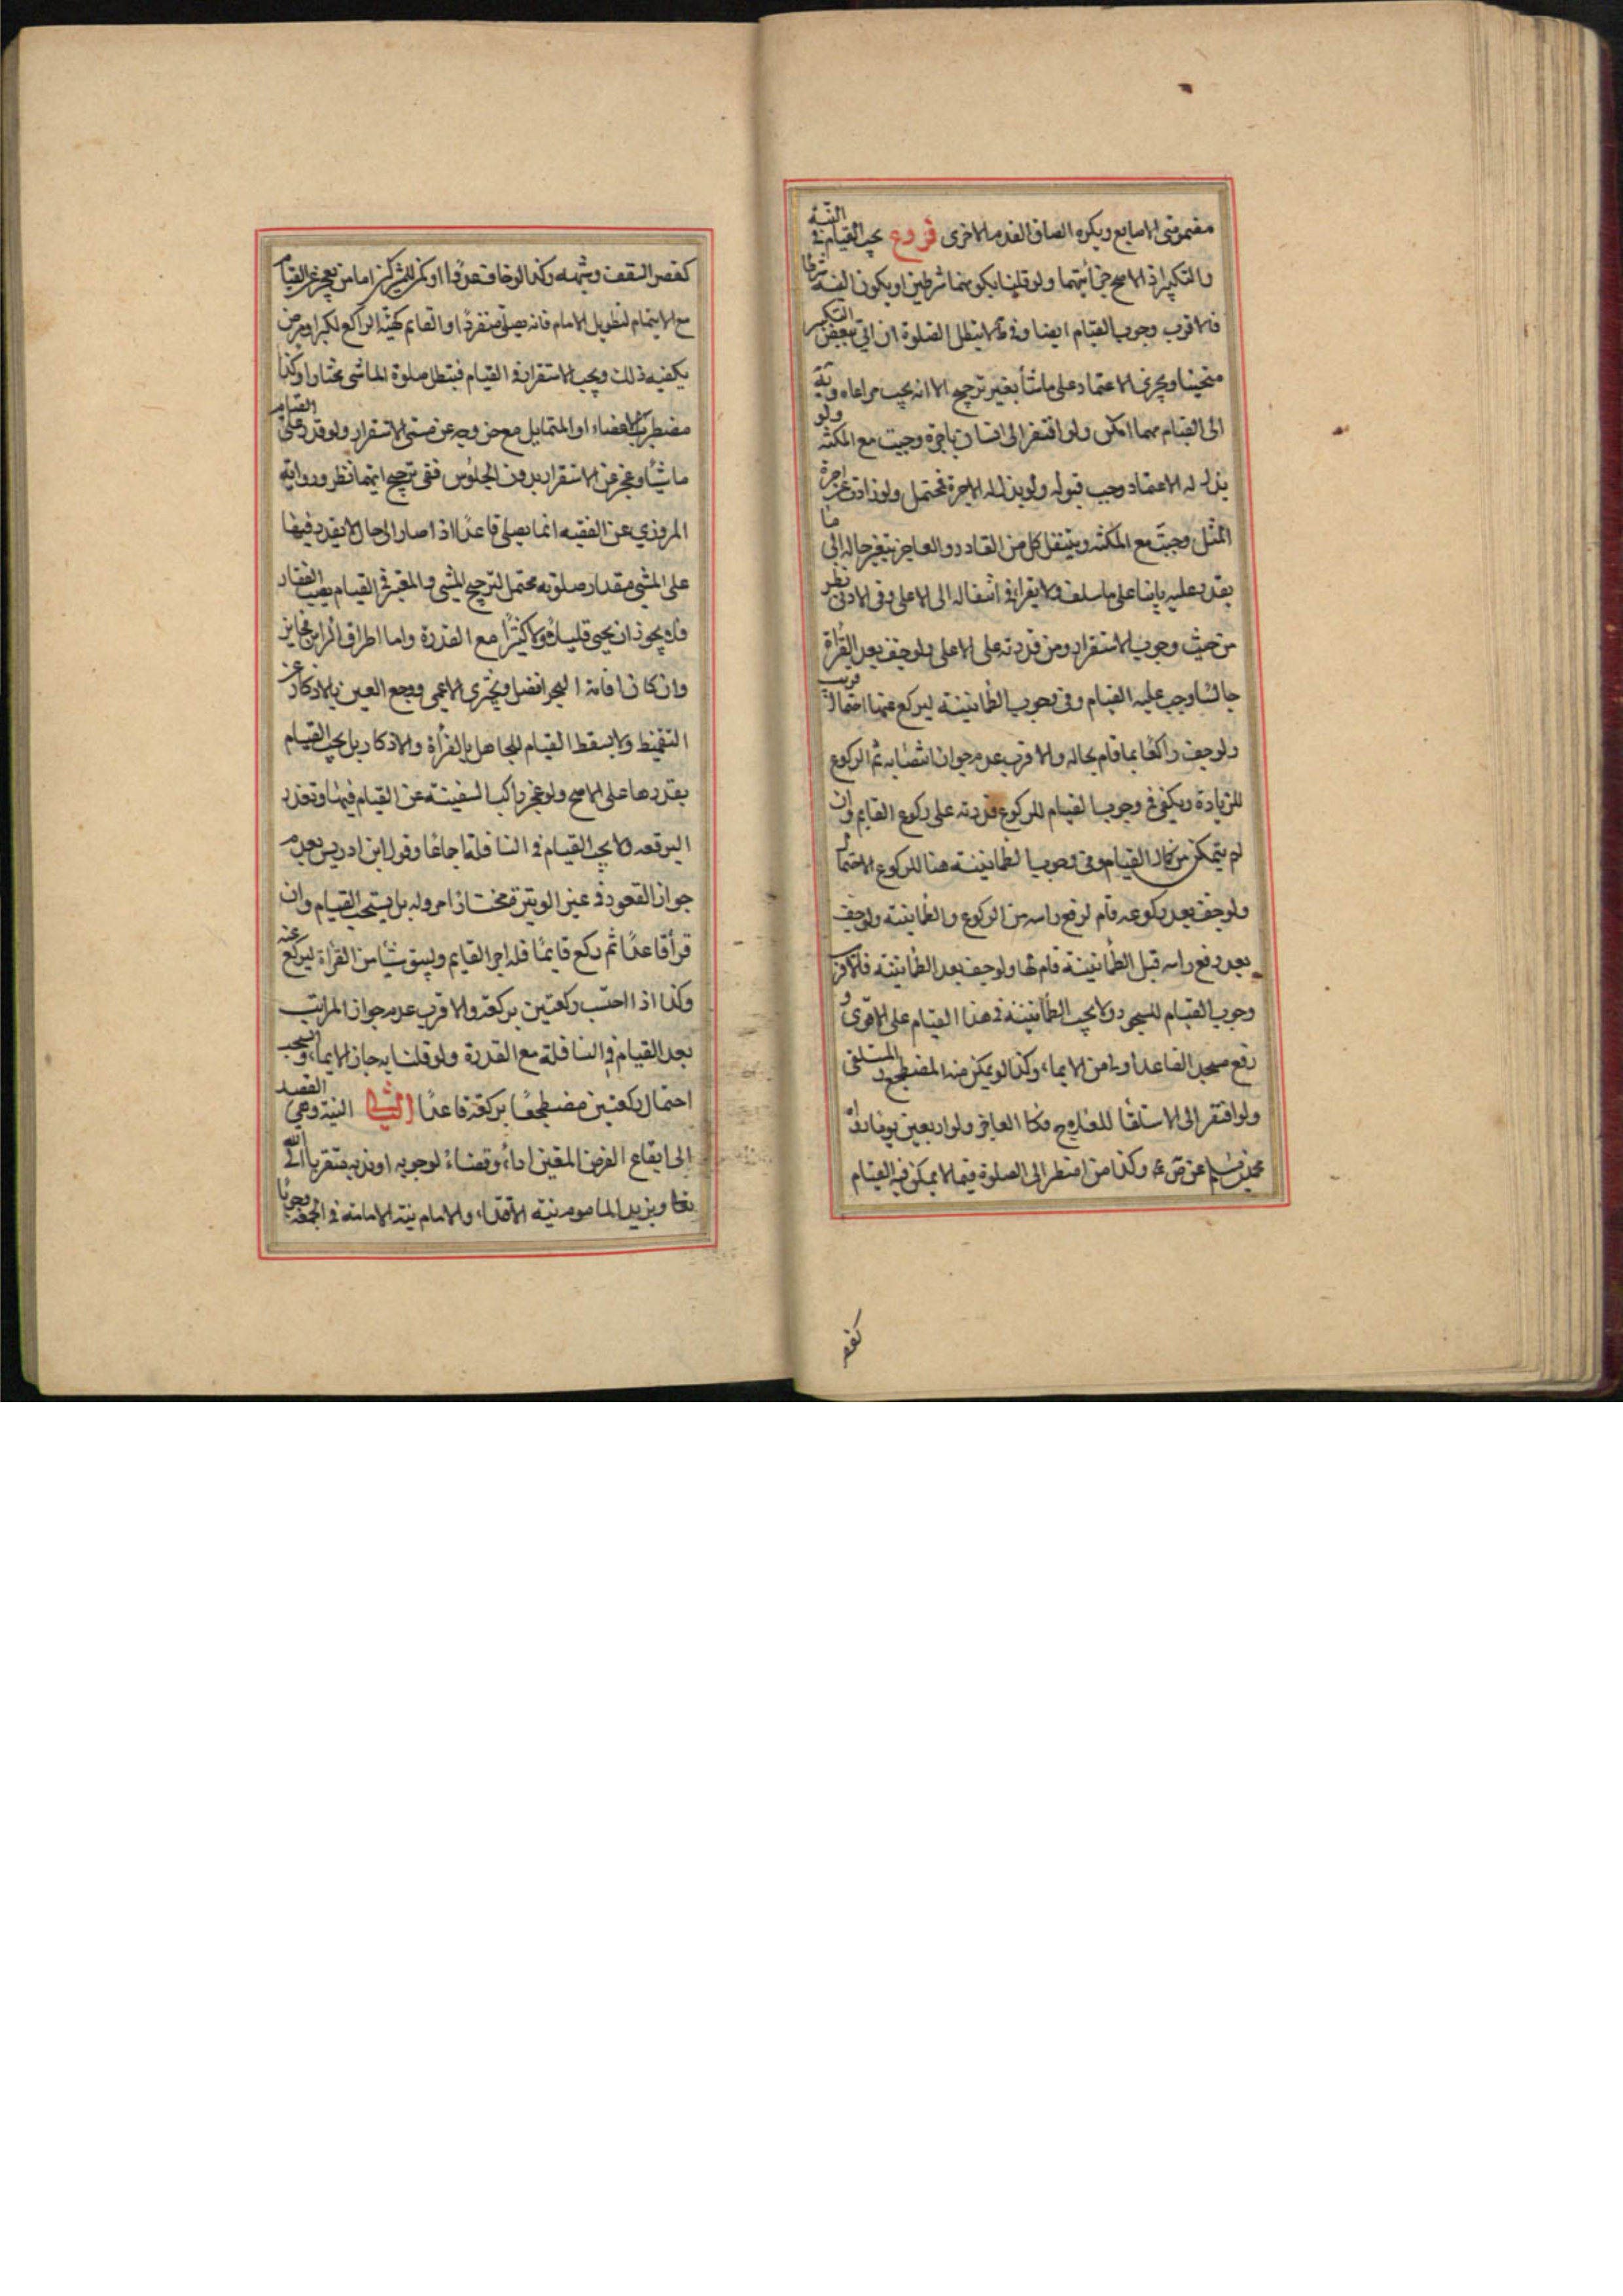 مضمومتى الاصابع ويكره الصاق القدم بالاخرى فروع يجب القيام فى النية
والتكبير اذ الاصح جزئيتهما ولو قلنا بكونهما شرطين او بكون النية شرطا
فالاقرب وجوب القيام ايضا وفى ط لا تبطل الصلوة ان اتى ببعض التكبير
منحنيا ويجزى الاعتماد على ما شاء بغير ترجيح الا انه يجب مراعاة
الى القيام مهما امكن ولو افتقر الى انسان باجرة وجبت مع المكنة ولو
بذل له الاعتماد وجب قبوله ولو بذل له الاجرة فمحتمل ولو زادت عن اجرة
المثل وجبت مع المكنة وينتقل كل من القادر والعاجز بتغير حاله الى ما
يقدر عليه بانيا على ما سلف ولا يقرا فى انتقاله الى الاعلى وفى الادنى نظر
من حيث وجوب الاستقرار ومن قدرته على الاعلى ولو خف بعد القرأة
جالسا وجب عليه القيام وفى وجوب الطمانينة ليركع عنها احتمال قريب
ولو خف راكعا بما قام بحاله والاقرب عدم جواز انتصابه ثم الركوع
للزيادة ويكفى فى وجوب القيام للركوع قدرته على ركوع القايم وان
لم يتمكن من كمال القيام وفى وجوب الطمانينة هنا للركوع الاحتمال
ولو خف بعد ركوعه قام لرفع راسه من الركوع والطمانينة ولو خف
بعد رفع راسه قبل الطمانينة قام لها ولو خف بعد الطمانينة فالاقرب
وجوب القيام للسجود ولا يجب الطمانينة فى هذا القيام على الاقوى و
رفع مسجد القاعد اولى من الايماء وكذا لو يمكن منه المضطجع والمستلقى
ولو افتقر الى الاستلقاء للعلاج فكا العاجز ولو اربعين يوما رواه
محمد بن مسلم عن ص ع وكذا من اضطر الى الصلوة فيما لا يمكن فيه القيام
كقصر
كقصر السقف وشبهه وكذا لو خاف عدوا او كمن للمشركين اما من يعجز عن القيام
مع الايتمام لتطويل الامام فانه يصلى منفردا او القايم كهيئة الراكع لكبر او مرض
يكفيه ذلك ويجب الاستقرار فى القيام فتبطل صلوة الماشى مختارا وكذا
مضطرب الاعضاء او المتمايل مع خروجه عن مسمى الاستقرار ولو قدر على القيام
ماشيا وعجز عن الاستقرار بدون الجلوس ففى ترجيح ايهما نظر ورواية
المروزي عن الفقيه انما يصلى قاعدا اذا صار الى حال لا يقدر فيها
على المشى مقدار صلوته محتمل لترجيح المشى والمعتبر فى القيام نصب الفقار
فلا يجوز ان يحنى قليلا ولا كثيرا مع القدرة واما اطراق الراس فجايز
وان كان اقامة النحر افضل ويجتزى الاعمى ووجع العين بالاذكار عن
التغميض ولا يسقط القيام للجاهل بالقرأة والاذكار بل يجب القيام
بقدرها على الاصح ولو عجز راكب السفينة عن القيام فيها وتعذر
اليرقعه ولا يجب القيام فى النافلة اجماعا وقول ابن ادريس بعدم
جواز القعود فى غير الوتيرة امر وله بل يستحب القيام وان
قرأ قاعدا ثم ركع قايما فله اجر القايم وليبق شيئا من القرأة ليركع عنه
وكذا اذا احتسب ركعتين بركعة والاقرب عدم جواز المراتب
بعد القيام فى النافلة مع القدرة ولو قلنا به جاز الايماء وانسحب
احتمال ركعتين مضطجعا بركعة قاعدا الثانى النية وهى القصد
الى ايقاع الفرض المعين اداء وقضاء لوجوبه او ندبه متقربا الى الله
تعا ويزيد الماموم نية الاقتداء والامام نية الامامة فى الجمعة وجوبا